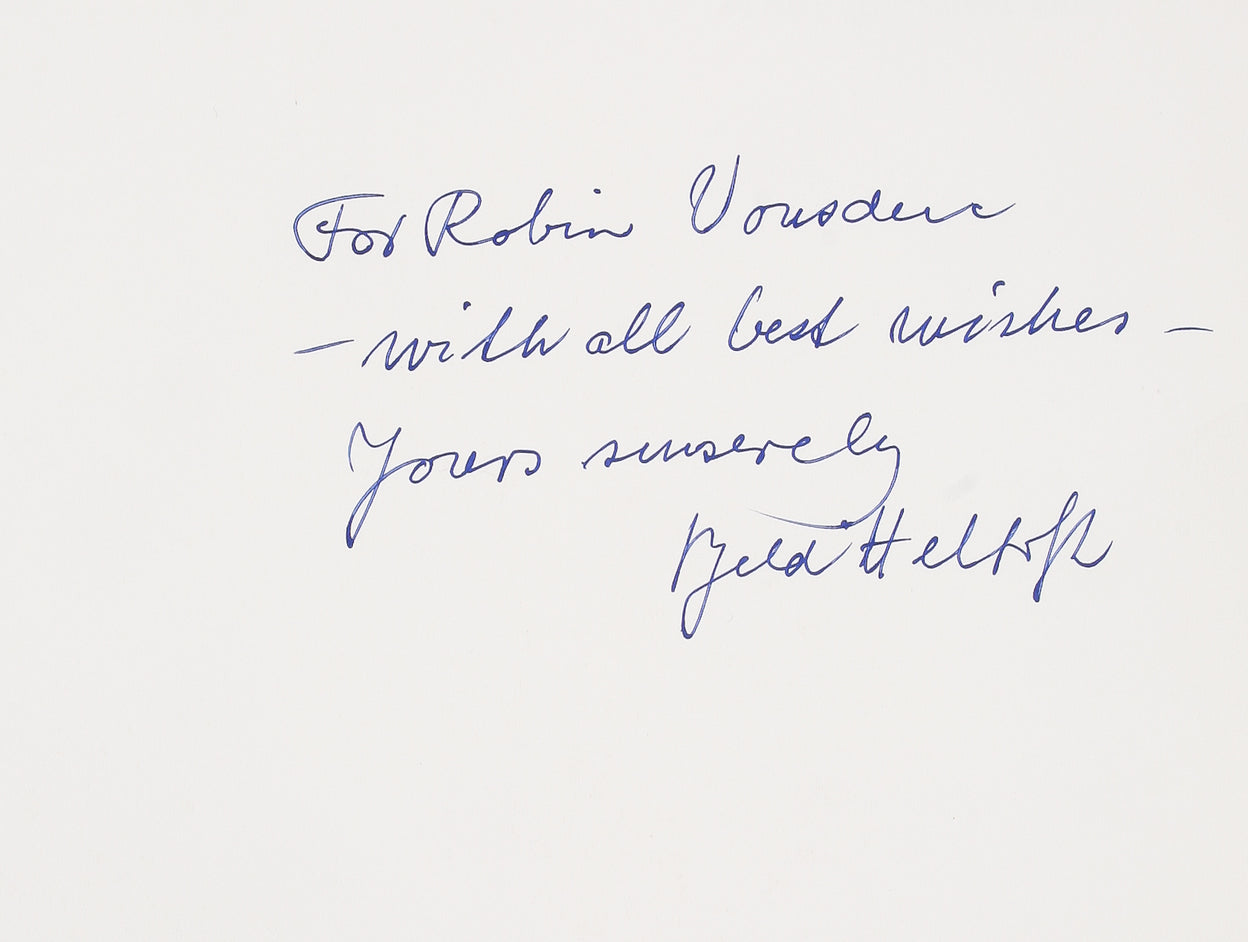 For Robin Vousden
— with all best wishes —
Yours sinserely
Kjeld Heltoft